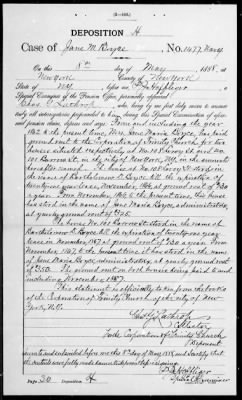 (3—446.)
DEPOSITION H
Case of Jane M Royce, No 1477 Navy
On this 8th day of May, 1888, at
New York, County of New York
State of N.Y., before me,
Special Examiner of the Pension Office, personally appeared
Chas. J. Lathrop, who, being by me first duly sworn to answer
truly all interrogatories propounded to him during this Special Examination of afore-
said pension claim, deposes and says: From and including the year
1862 to the present time, Mrs. Jane Maria Royce, has paid
ground rent to the Corporation of Trinity Church, for two
houses situated respectively at No 101 Leroy st. and No
101 Barrow st. in the City of New York, N.Y., in the amounts
hereafter named. The lease of No 101 Leroy st stood in
the name of Bartholomew C. Royce till the expiration of
twenty one year lease, November, 1866, at ground rent of $30
a year. From November, 1866 to the present time, this house
has stood in the name of Jane Maria Royce, administratrix,
at yearly ground rent of $75.
The house No 101 Barrow st. stood in the name of
Bartholomew C. Royce till the expiration of twenty one year
lease in November 1867 at ground rent of $30 a year. From
November 1867 to the present time it has stood in the name
of Jane Maria Royce, administratrix, at yearly ground rent
of $50. The ground rent on both houses being paid to and
including November 1887.
This statement is officially taken from the books
of the Corporation of Trinity Church of the city of New
York, N.Y.
Chas J Lathrop
Collector
for the Corporation of Trinity Church
Deponent
Sworn to and subscribed before me this 8th day of May, 1888, and I certify that
the contents were fully made known to deponent before signing.
Special Examiner
Page 20 H